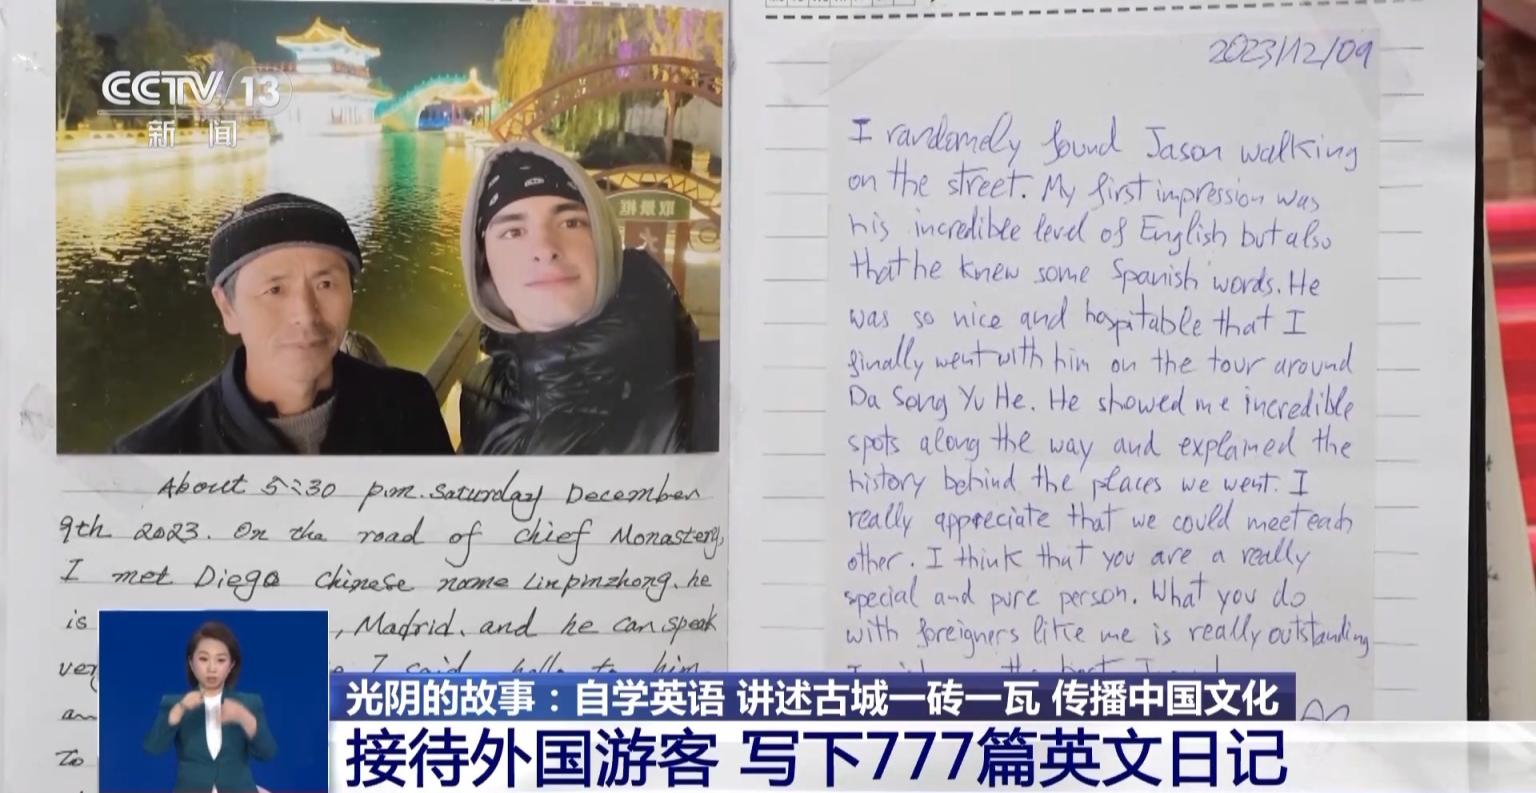 CCTV 13
新闻
取景框
About 5:30 p.m. Saturday December
9th 2023. On the road of Chief Monastery,
I met Diego Chinese name Linpinzhong. he
is
, Madrid. and he can speak
very
I said hello to him
an
To
2023/12/09
I randomely found Jason walking
on the street. My first impression was
his incredible level of English but also
that he knew some Spanish words. He
was so nice and hospitable that I
finally went with him on the tour around
Da Song Yu He. He showed me incredible
spots along the way and explained the
history behind the places we went. I
really appreciate that we could meet each
other. I think that you are a really
special and pure person. What you do
with foreigners like me is really outstanding
光阴的故事：自学英语 讲述古城一砖一瓦 传播中国文化
接待外国游客 写下777篇英文日记